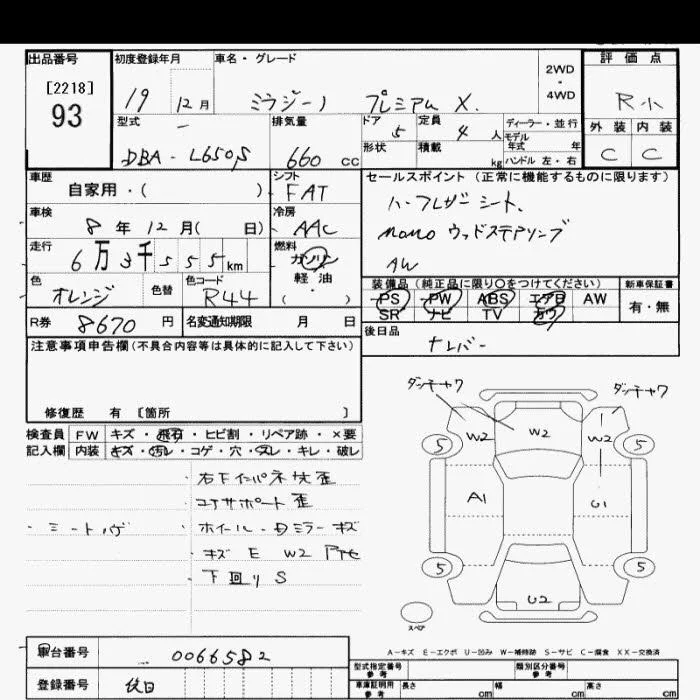 出品番号
[2218]
93
初度登録年月
19 12月
車名・グレード
ミラジーノ プレミアム X.
2WD
・
4WD
評価点
R 小
外装 内装
C C
型式
DBA - L650S
排気量
660 cc
ドア 5
定員 4 人
ディーラー・並行
モデル
年式 年
ハンドル 左・右
形状
積載 kg
車歴
自家用・( )
シフト
FAT
セールスポイント (正常に機能するものに限ります)
ハーフレザーシート、
momo ウッドステアリング
AW
車検
8年 12月( 日)
冷房
AAC
走行
6万3千555km
燃料
ガソリン
軽油
( ・ )
色
オレンジ
色替
色コード
R44
装備品 (純正品に限り○をつけてください)
PS PW ABS エアB AW
SR ナビ TV カワ
新車保証書
有・無
R券 8670 円
名変通知期限 月 日
後日品
ナシバー
注意事項申告欄(不具合内容等は具体的に記入して下さい)
修復歴 有 〔箇所 〕
検査員
記入欄
FW キズ・飛石・ヒビ割・リペア跡・×要
内装 キズ・汚レ・コゲ・穴・スレ・キレ・破レ
右下インパネ状 歪
コアサポート 歪
・ シートハゲ
ホイール・Dミラーキズ
キズ E W2
下回り S
ダッチャク
ダッチャク
W2 W2 W2
5 5
A1 U1
5 5
U2
スペア
A−キズ E−エクボ U−凹み W−補修跡 S−サビ C−腐食 XX−交換済
車台番号
0066582
登録番号
後日
型式指定番号
参考
類別区分番号
参考
車庫証明用
参考
長さ cm
幅 cm
高さ cm